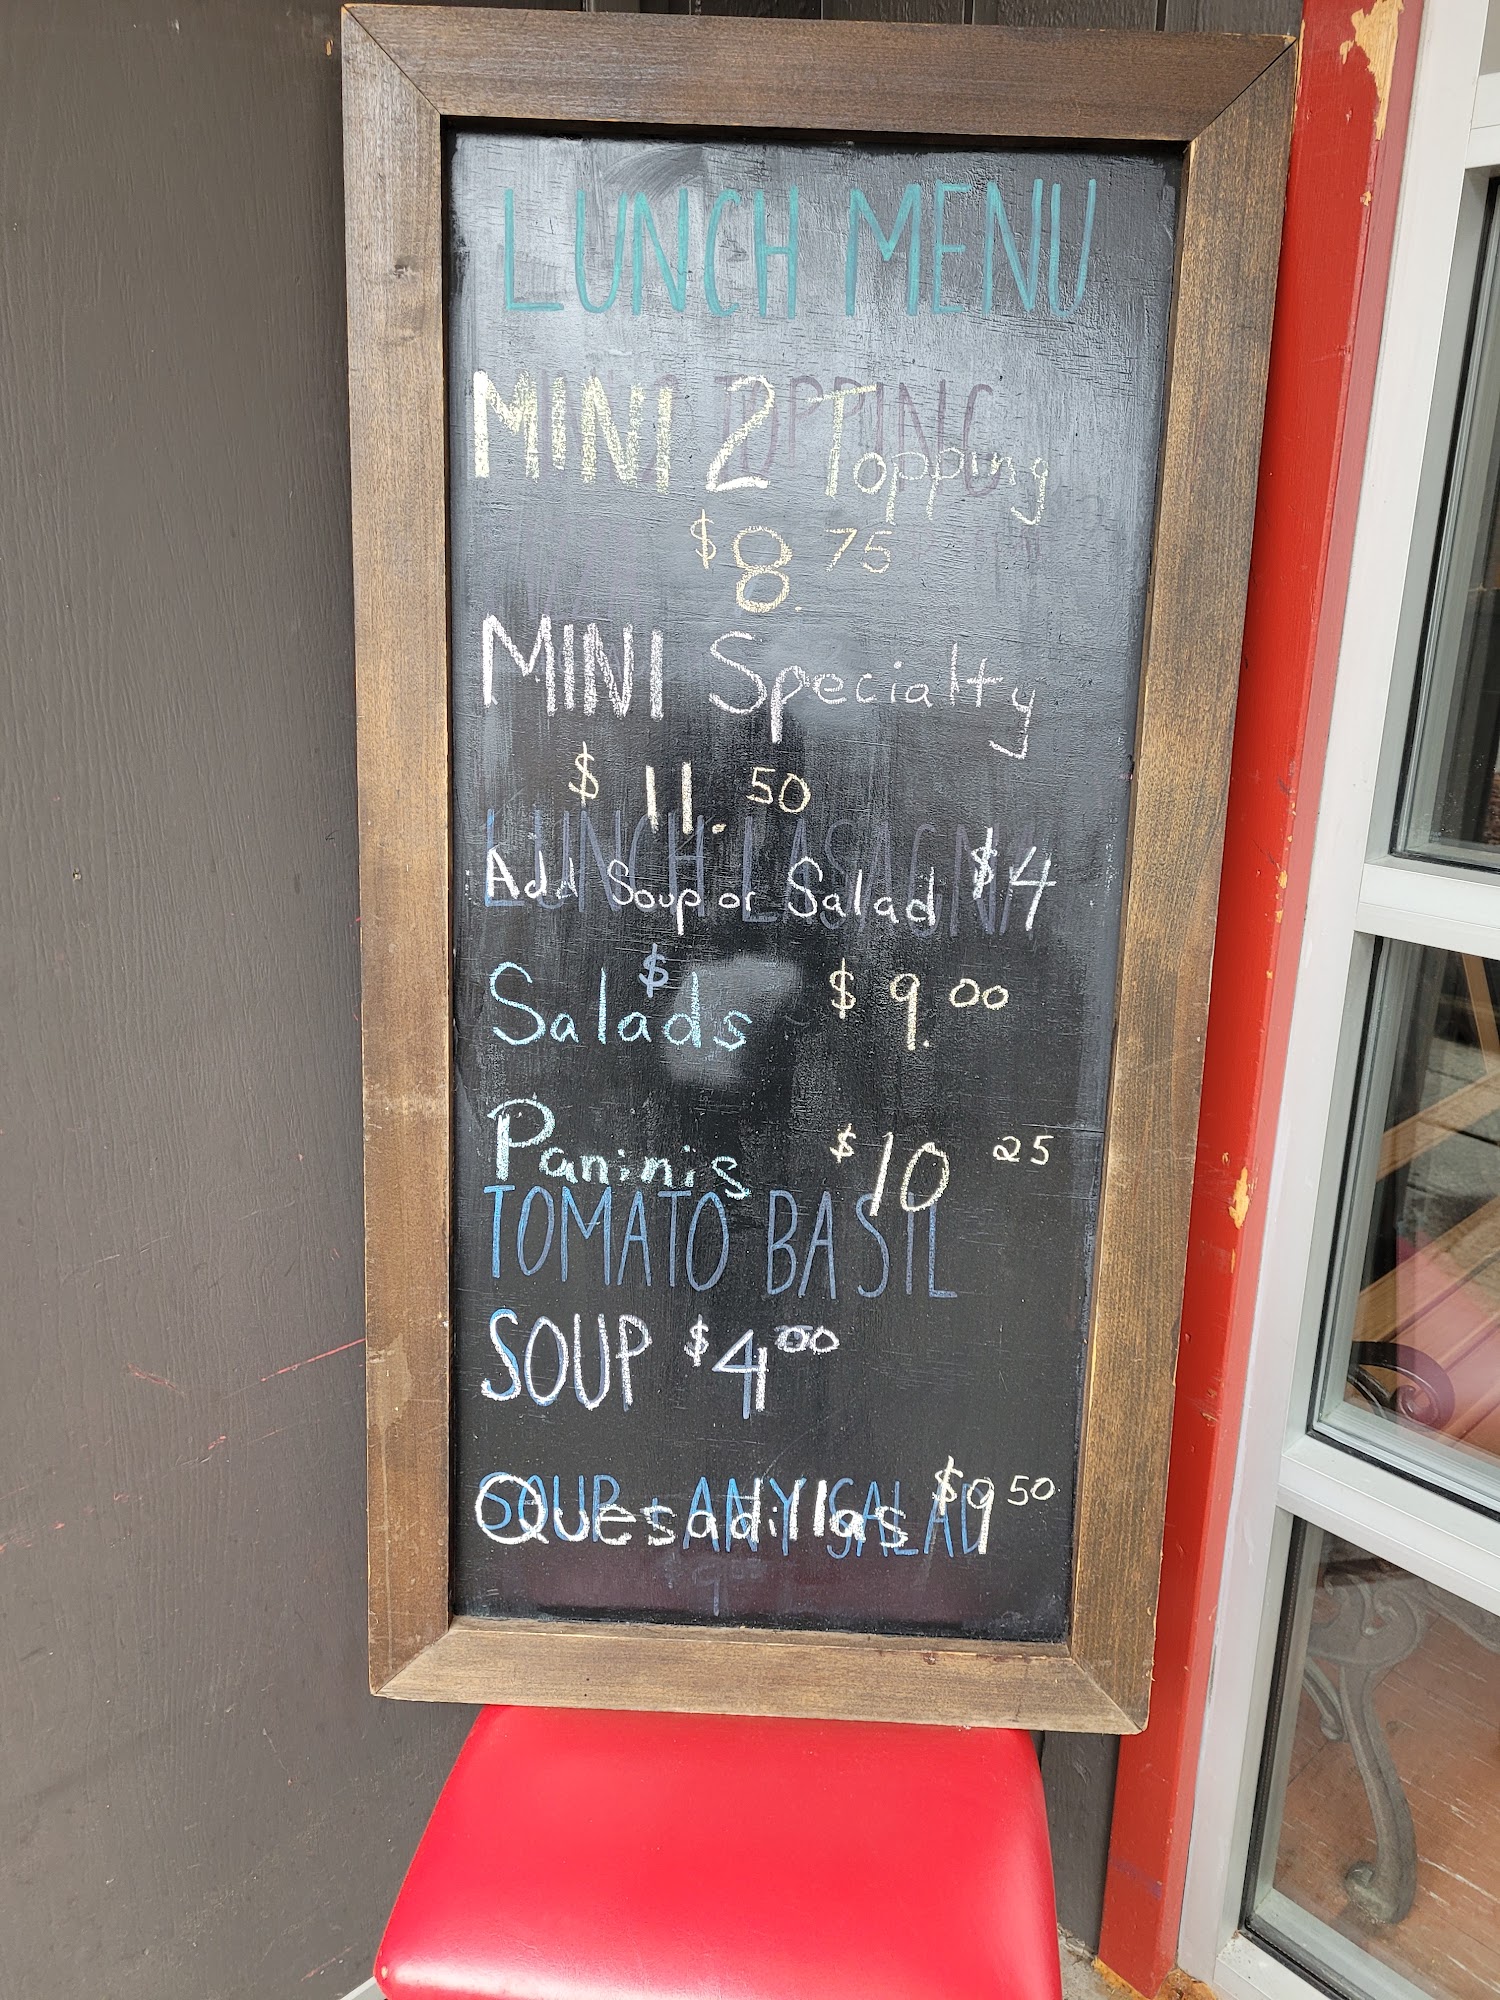 LUNCH MENU
MINI 2 Topping
TOPPING
$8.75
MINI Specialty
$11.50
LUNCH LASAGNA
Add Soup or Salad $4
$
Salads $9.00
Paninis $10 25
TOMATO BASIL
SOUP $4 00
SOUP + ANY SALAD
Quesadillas $9 50